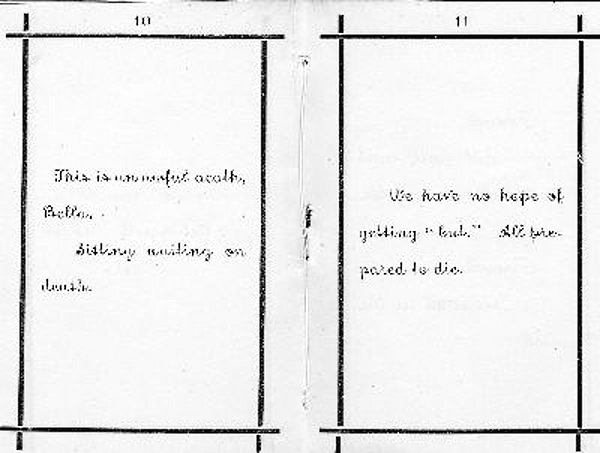 10
This is an awful death,
Bella.
Sitting waiting on
death.
11
We have no hope of
getting "out." All pre-
pared to die.